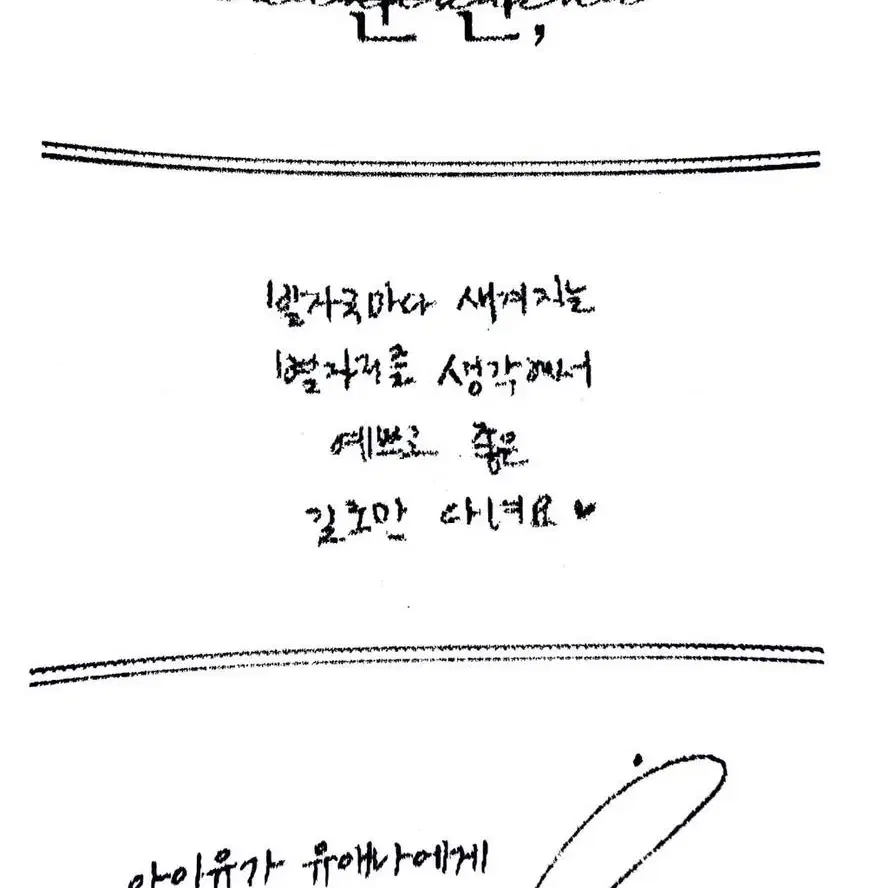 발자국마다 새겨지는
별자리를 생각해서
예쁘고 좁은
길로만 다녀요♥
아이유가 유애나에게